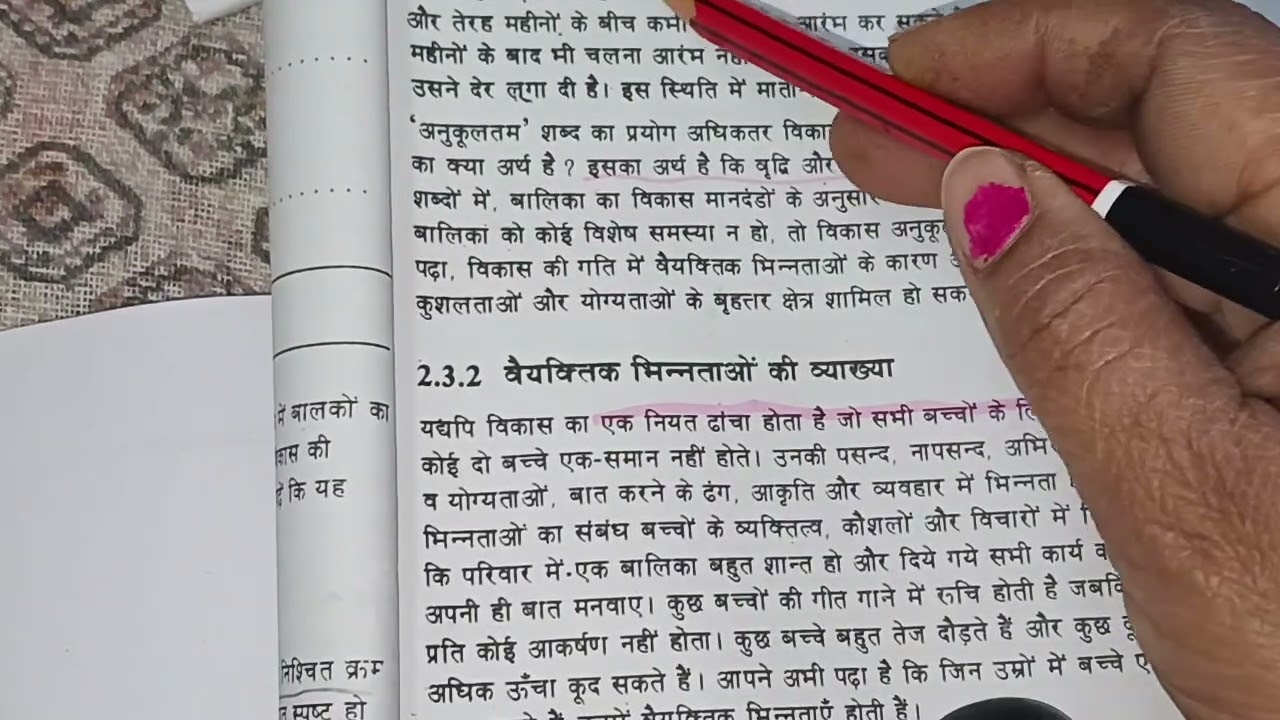 और तेरह महीनों के बीच कभी आरंभ कर
महीनों के बाद भी चलना आरंभ
उसने देर लगा दी है। इस स्थिति में माता-
‘अनुकूलतम’ शब्द का प्रयोग अधिकतर
का क्या अर्थ है ? इसका अर्थ है कि वृद्धि और
शब्दों में, बालिका का विकास मानदंडों के अनुसार
बालिका को कोई विशेष समस्या न हो, तो विकास
पढ़ा, विकास की गति में वैयक्तिक भिन्नताओं के कारण
कुशलताओं और योग्यताओं के बृहत्तर क्षेत्र शामिल हो
2.3.2 वैयक्तिक भिन्नताओं की व्याख्या
यद्यपि विकास का एक नियत ढांचा होता है जो सभी बच्चों के
कोई दो बच्चे एक-समान नहीं होते। उनकी पसन्द, नापसन्द,
व योग्यताओं, बात करने के ढंग, आकृति और व्यवहार में भिन्नता
भिन्नताओं का संबंध बच्चों के व्यक्तित्व, कौशलों और विचारों में
कि परिवार में एक बालिका बहुत शान्त हो और दिये गये सभी कार्य
अपनी ही बात मनवाए। कुछ बच्चों की गीत गाने में रुचि होती है
प्रति कोई आकर्षण नहीं होता। कुछ बच्चे बहुत तेज दौड़ते हैं और कुछ
अधिक ऊँचा कूद सकते हैं। आपने अभी पढ़ा है कि जिन उम्रों में बच्चे
वैयक्तिक भिन्नताएँ होती हैं।
में बालकों का
की
कि यह
निश्चित क्रम
स्पष्ट हो